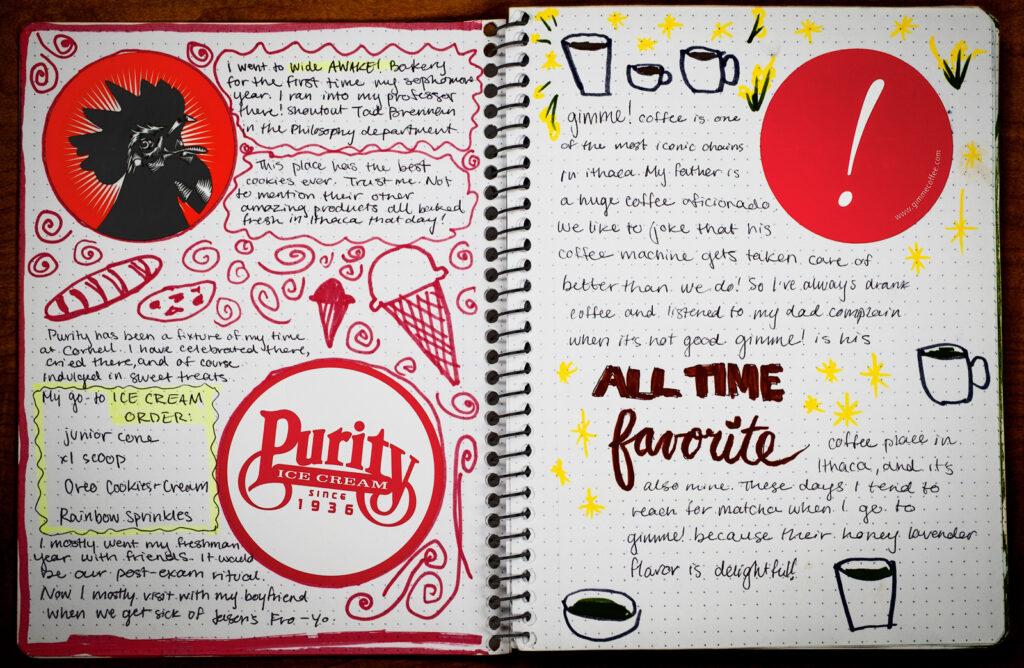 I went to wide AWAKE! Bakery
for the first time my sophomore
year. I ran into my professor
there! shoutout Tad Brennan
in the Philosophy department.
This place has the best
cookies ever. Trust me. Not
to mention their other
amazing products all baked
fresh in Ithaca that day!
Purity has been a fixture of my time
at Cornell. I have celebrated there,
cried there, and of course
indulged in sweet treats.
My go-to ICE CREAM
ORDER:
junior cone
x1 scoop
Oreo Cookies+Cream
Rainbow Sprinkles
I mostly went my freshman
year with friends. It would
be our post-exam ritual.
Now I mostly visit with my boyfriend
when we get sick of Jason's Fro-Yo.
Purity
ICE CREAM
SINCE
1936
gimme! coffee is one
of the most iconic chains
in ithaca. My father is
a huge coffee aficionado
We like to joke that his
coffee machine gets taken care of
better than we do! So I've always drank
coffee and listened to my dad complain
when it's not good gimme! is his
ALL TIME
favorite
coffee place in
Ithaca, and it's
also mine. These days I tend to
reach for matcha when I go to
gimme! because their honey lavender
flavor is delightful!
!
www.gimmecoffee.com